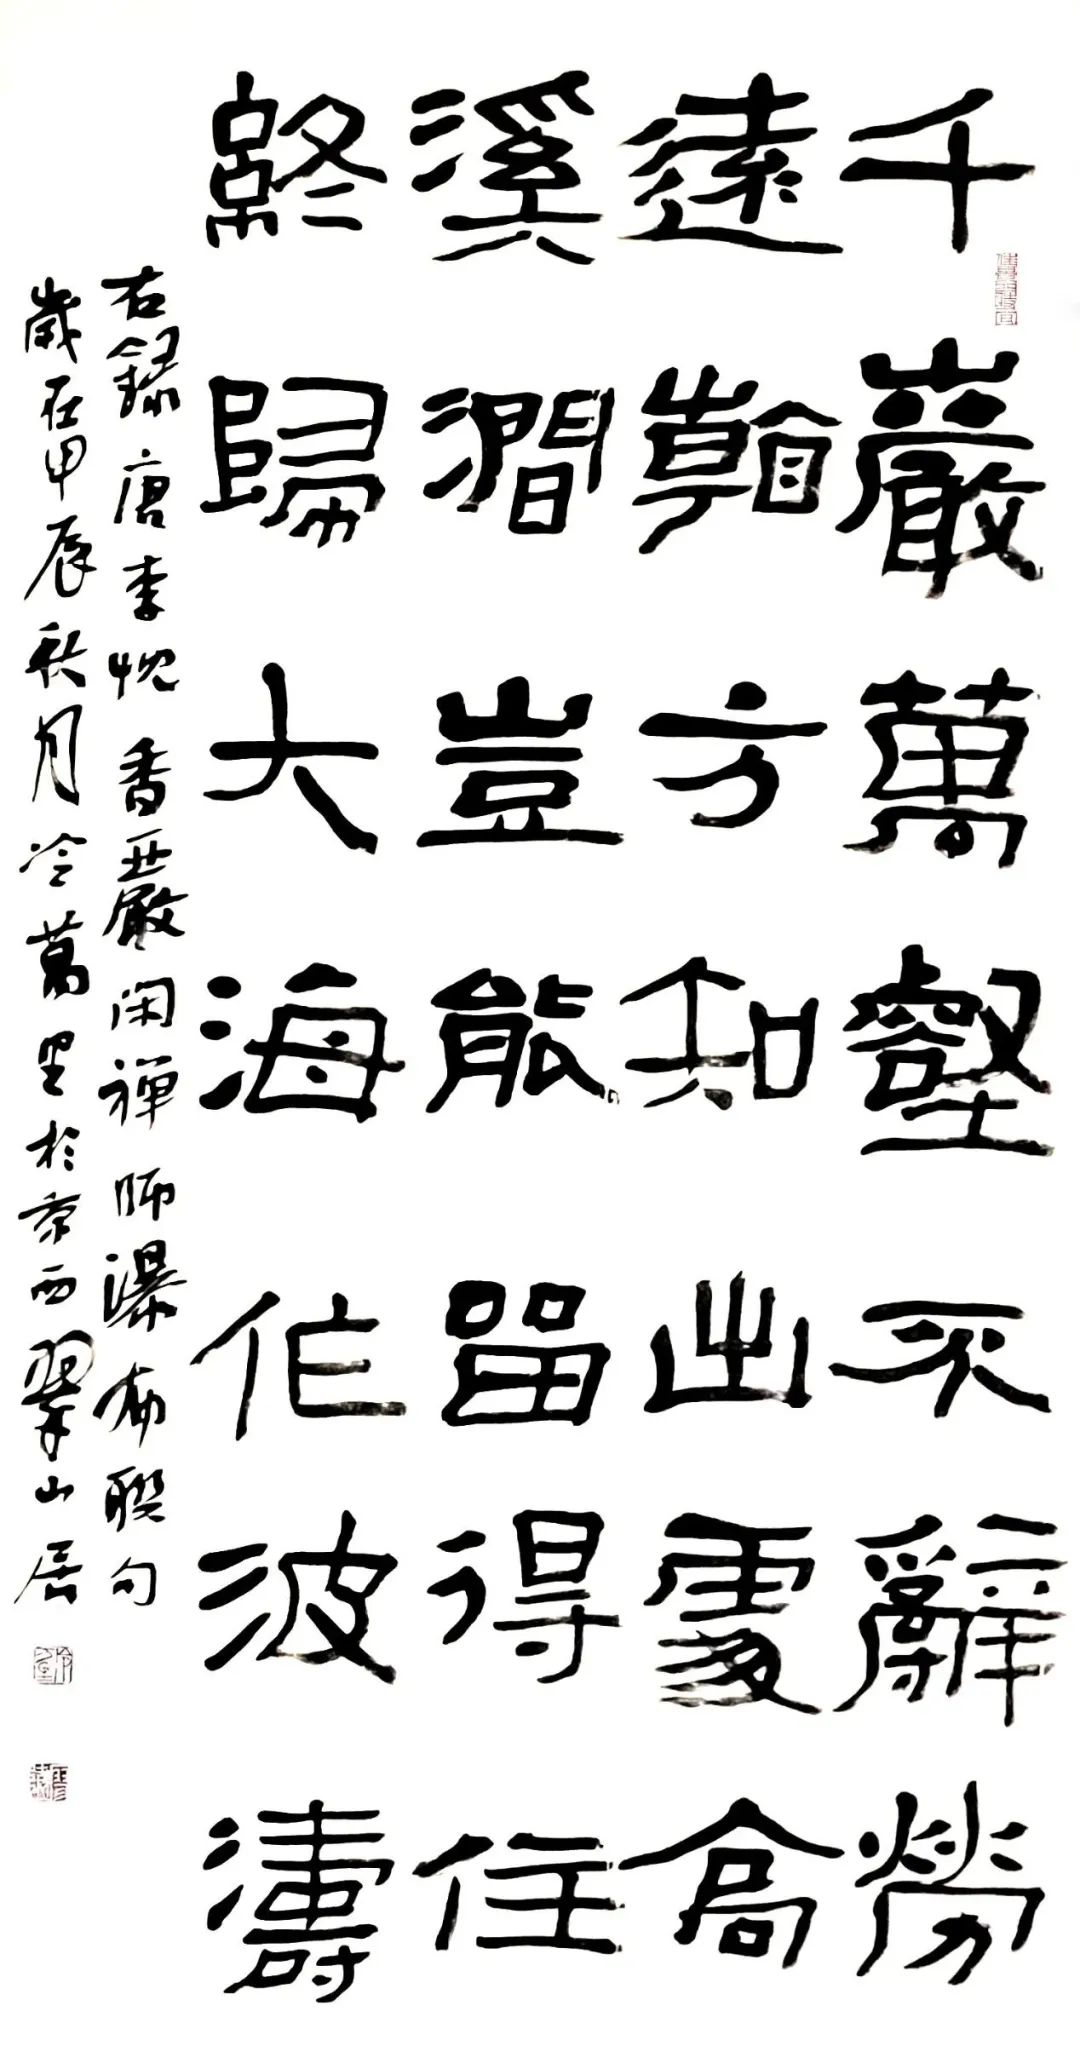 千巖萬壑不辭勞
遠看方知出處高
溪澗豈能留得住
終歸大海作波濤
右錄唐李忱香嚴闲禅師瀑布聯句
歲在甲辰秋月冷萬里於京西翠山居